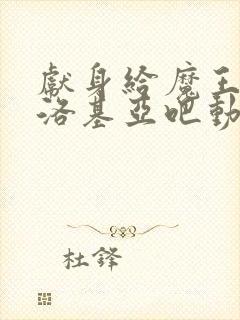 獻身給魔王伊
洛基亞吧動
杜鋒